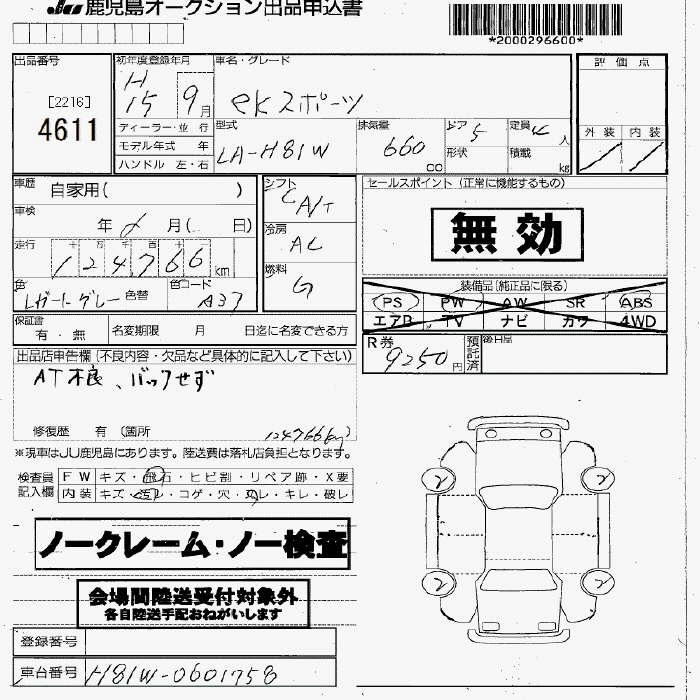 JU 鹿児島オークション出品申込書
*2000296600*
出品番号
[2216]
4611
初年度登録年月
H
15 9月
ディーラー・並 行
モデル年式 年
ハンドル 左・右
車名・グレード
eKスポーツ
型式
LA-H81W
排気量
660
cc
ドア 5
形状
定員 4 人
積載 kg
評 価 点
外 装 内 装
車歴 自家用( )
車検
年 月( 日)
走行 十 万 千 百 十
124,766 km
色
色替
色コード
A37
シフト
C A/T
冷房
AC
燃料
G
セールスポイント (正常に機能するもの)
無 効
装備品 (純正品に限る)
PS PW AW SR ABS
エアB TV ナビ カワ 4WD
保証書
有 ・ 無
名変期限 月 日迄に名変できる方
R券
9250円
預託済
後日品
出品店申告欄 (不良内容・欠品など具体的に記入して下さい)
AT不良、バックせず
修復歴 有 (箇所
124766km)
※現車はJU鹿児島にあります。陸送費は落札店負担となります。
検査員
記入欄
FW キズ・飛石・ヒビ割・リペア跡・X要
内装 キズ・汚レ・コゲ・穴・スレ・キレ・破レ
ノークレーム・ノー検査
会場間陸送受付対象外
各自陸送手配おねがいします
登録番号
車台番号
H81W-0601758
2
2
2
2